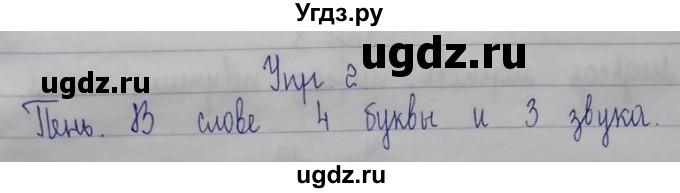 Угдз.ру
ugdz.ru
ugdz.ru
Упр 2.
Пень. В слове 4 буквы и 3 звука.
ugdz.ru
ugdz.ru